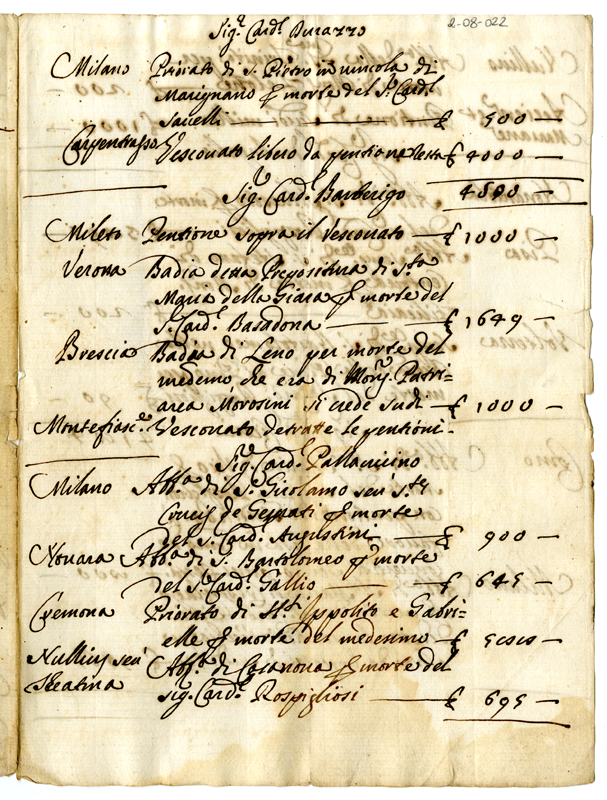 2-08-022
Sig.r Card.l Durazzo
Milano Priorato di S. Pietro in vincola di
Marignano p morte del S.r Card.l
Savelli £ 500
Carpentrasso Vescouato libero da pentione £ 4000
4500
Sig.r Card.l Barberigo
Mileto Pentione sopra il Vescouato £ 1000
Verona Badia detta Prepositura di S.ta
Maria della Giara p morte del
S.r Card.l Basadona £ 1649
Brescia Badia di Leno per morte del
medemo, che era di Mons.r Patri-
arca Morosini si crede £ 1000
Montefiasc.e Vescouato detratte le pentioni.
Sig.r Card.l Pallauicino
Milano Abb.a di S. Girolamo seu S.te
Crucis de p morte
del S. Card.l Augustini £ 900
Nouara Abb.a di S. Bartolomeo p morte
del S.r Card.l Gallio £ 645
Cremona Priorato di S.ti Ippolito e Gabri-
elle p morte del medesimo £
Nullius seu Abb.a di Casanoua p morte del
Sig.r Card.l Rospigliosi £ 695